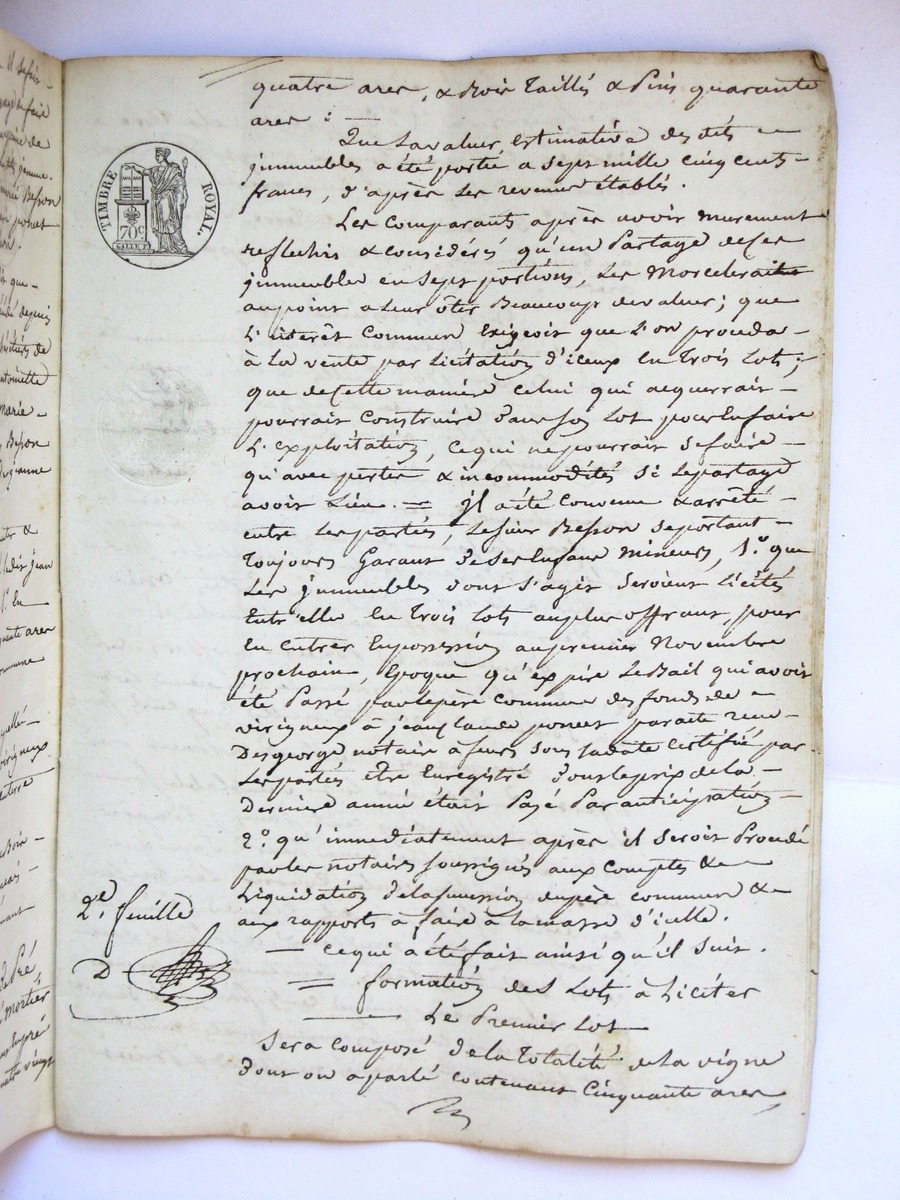 quatre ares, & Bois Taillis & Pins quarante
ares : —
Que la valeur estimative des dits
jmmeubles a été portée a sept mille cinq cents
francs, d'après les revenus établis.
Les comparants après avoir murement
reflechis & considérés qu'un Partage de ces
jmmeuble en sept portions, les Morceleroit
au point a leur ôter Beaucoup de valeur; que
L'intérêt commun Exigeoit que L'on proceda
à La vente par Licitation d'iceux En Trois Lots;
que de Cette manière celui qui acquerrait
pourrait construire dans son Lot pour En faire
L'exploitation, ce qui ne pourrait se faire
qu'avec pertes & incommodités si Le partage
avoit Lieu. = jl a été convenu & arrêté
entre Les parties, Le sieur Besson se portant
Toujours Garant de ses Enfans mineurs, 1.º que
Les jmmeubles dont s'agit seroient Licités
Entr'elle En Trois Lots au plus offrant, pour
En entrer En possession au premier Novembre
prochain, Epoque qu'expire Le Bail qui avoit
été Passé par le père commun des fonds de
virigneux à jean claude poncet par acte recu
Desgeorge notaire à feurs sous sa date certifié par
Les parties être Enregistré dont le prix de la
Dernière année étoit Payé Par anticipation
2.º qu'immédiatement après il seroit Procédé
par les notaires soussignés aux Comptes &
Liquidation de la succession du père commun &
aux rapports à faire à la masse d'icelle.
— ce qui a été fait ainsi qu'il suit.
= formation des Lots à Liciter
Le Premier Lot
Sera Composé de la Totalité de La vigne
dont on a parlé contenant Cinquante ares
TIMBRE ROYAL.
70c
2.e feuille
D